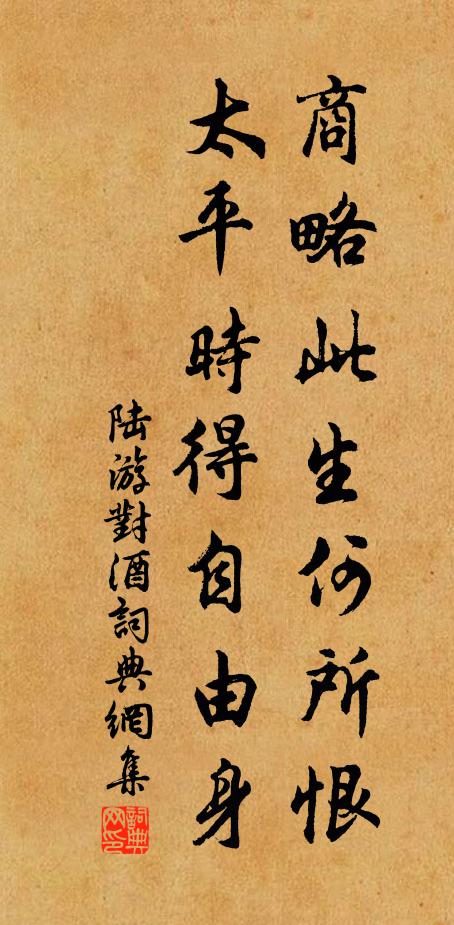 商略此生何所恨
太平時得自由身
陆游對酒詞典網集
詞典网印